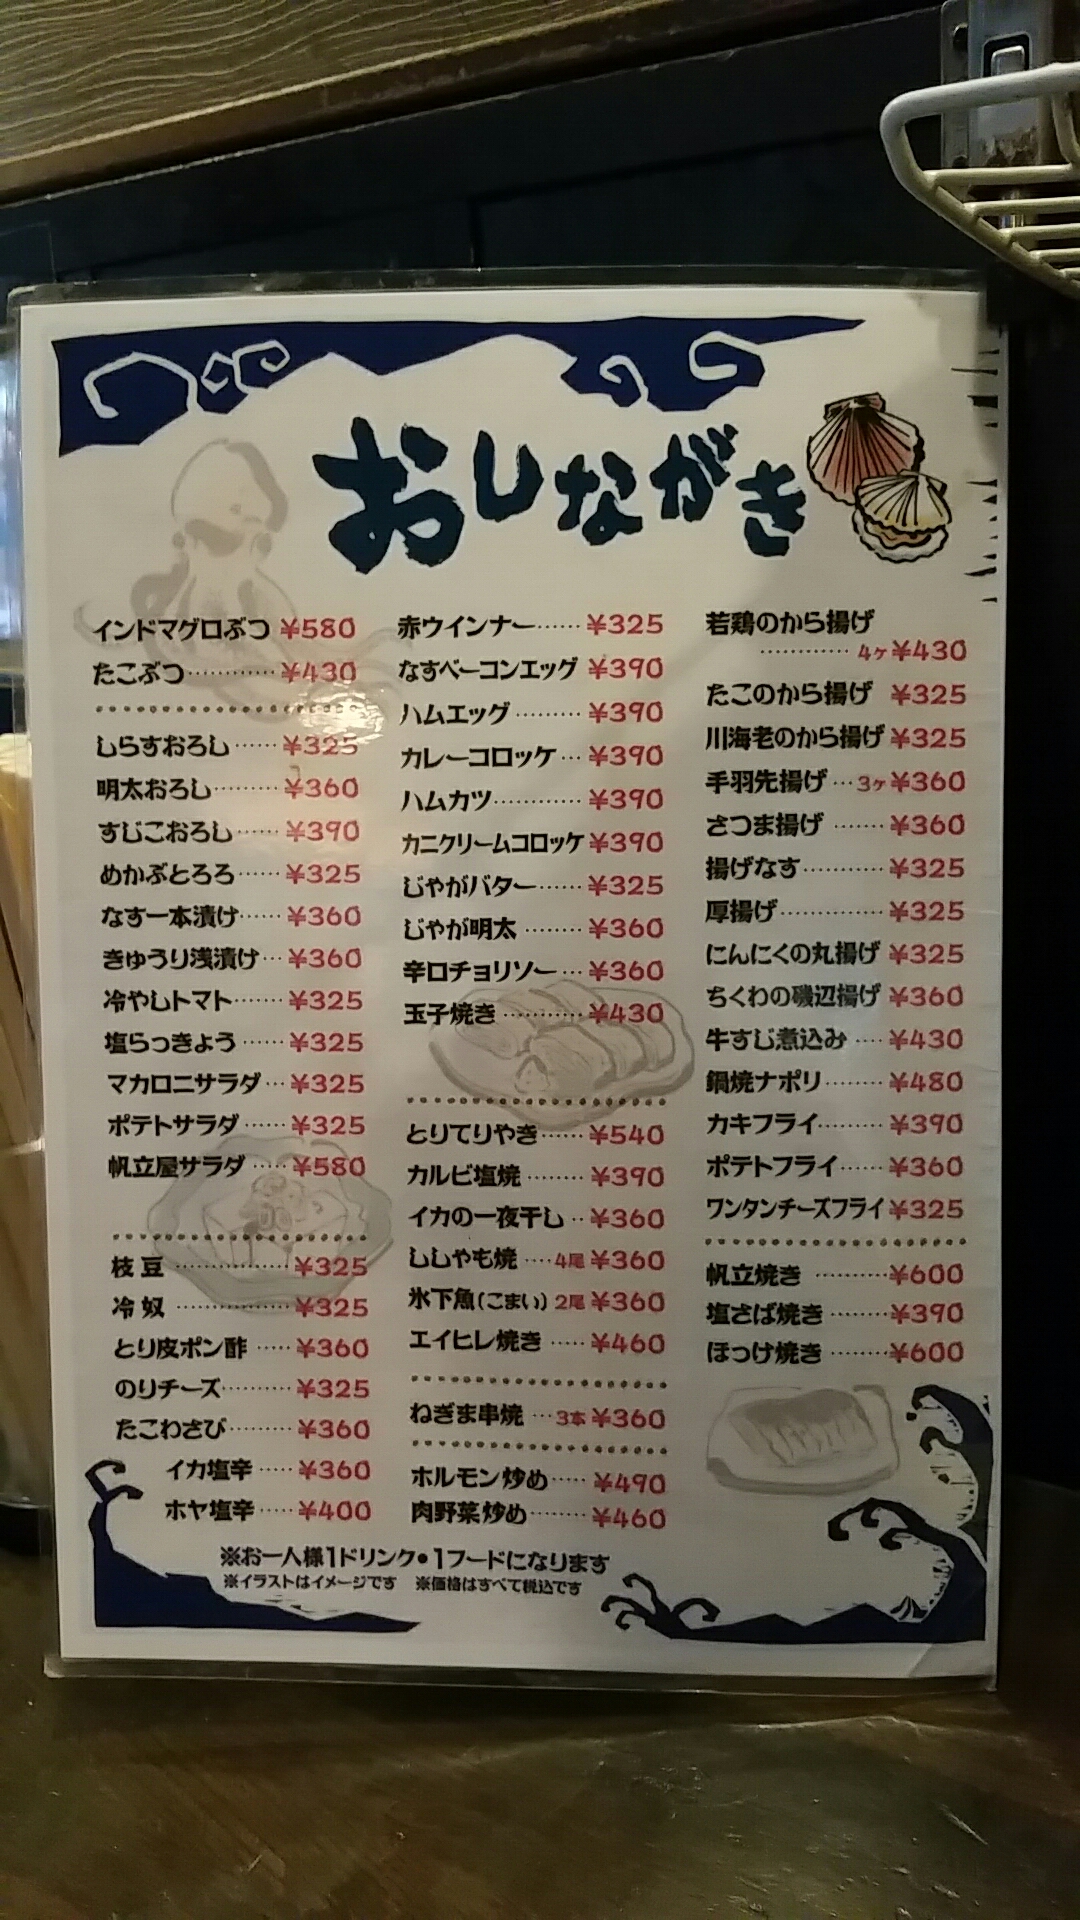 おしながき
インドマグロぶつ ¥580
たこぶつ………… ¥430
しらすおろし…… ¥325
明太おろし……… ¥360
すじこおろし…… ¥390
めかぶとろろ…… ¥325
なす一本漬け…… ¥360
きゅうり浅漬け… ¥360
冷やしトマト…… ¥325
塩らっきょう…… ¥325
マカロニサラダ… ¥325
ポテトサラダ…… ¥325
帆立屋サラダ…… ¥580
枝豆………… ¥325
冷奴………… ¥325
とり皮ポン酢…… ¥360
のりチーズ……… ¥325
たこわさび……… ¥360
イカ塩辛…… ¥360
ホヤ塩辛…… ¥400
赤ウインナー…… ¥325
なすベーコンエッグ ¥390
ハムエッグ……… ¥390
カレーコロッケ… ¥390
ハムカツ………… ¥390
カニクリームコロッケ ¥390
じゃがバター…… ¥325
じゃが明太……… ¥360
辛口チョリソー… ¥360
玉子焼き………… ¥430
とりてりやき…… ¥540
カルビ塩焼……… ¥390
イカの一夜干し… ¥360
ししゃも焼…4尾 ¥360
氷下魚(こまい)2尾 ¥360
エイヒレ焼き…… ¥460
ねぎま串焼…3本 ¥360
ホルモン炒め…… ¥490
肉野菜炒め……… ¥460
若鶏のから揚げ
…………4ヶ ¥430
たこのから揚げ ¥325
川海老のから揚げ ¥325
手羽先揚げ…3ヶ ¥360
さつま揚げ…… ¥360
揚げなす……… ¥325
厚揚げ………… ¥325
にんにくの丸揚げ ¥325
ちくわの磯辺揚げ ¥360
牛すじ煮込み… ¥430
鍋焼ナポリ…… ¥480
カキフライ…… ¥390
ポテトフライ… ¥360
ワンタンチーズフライ ¥325
帆立焼き……… ¥600
塩さば焼き…… ¥390
ほっけ焼き…… ¥600
※お一人様1ドリンク•1フードになります
※イラストはイメージです ※価格はすべて税込です